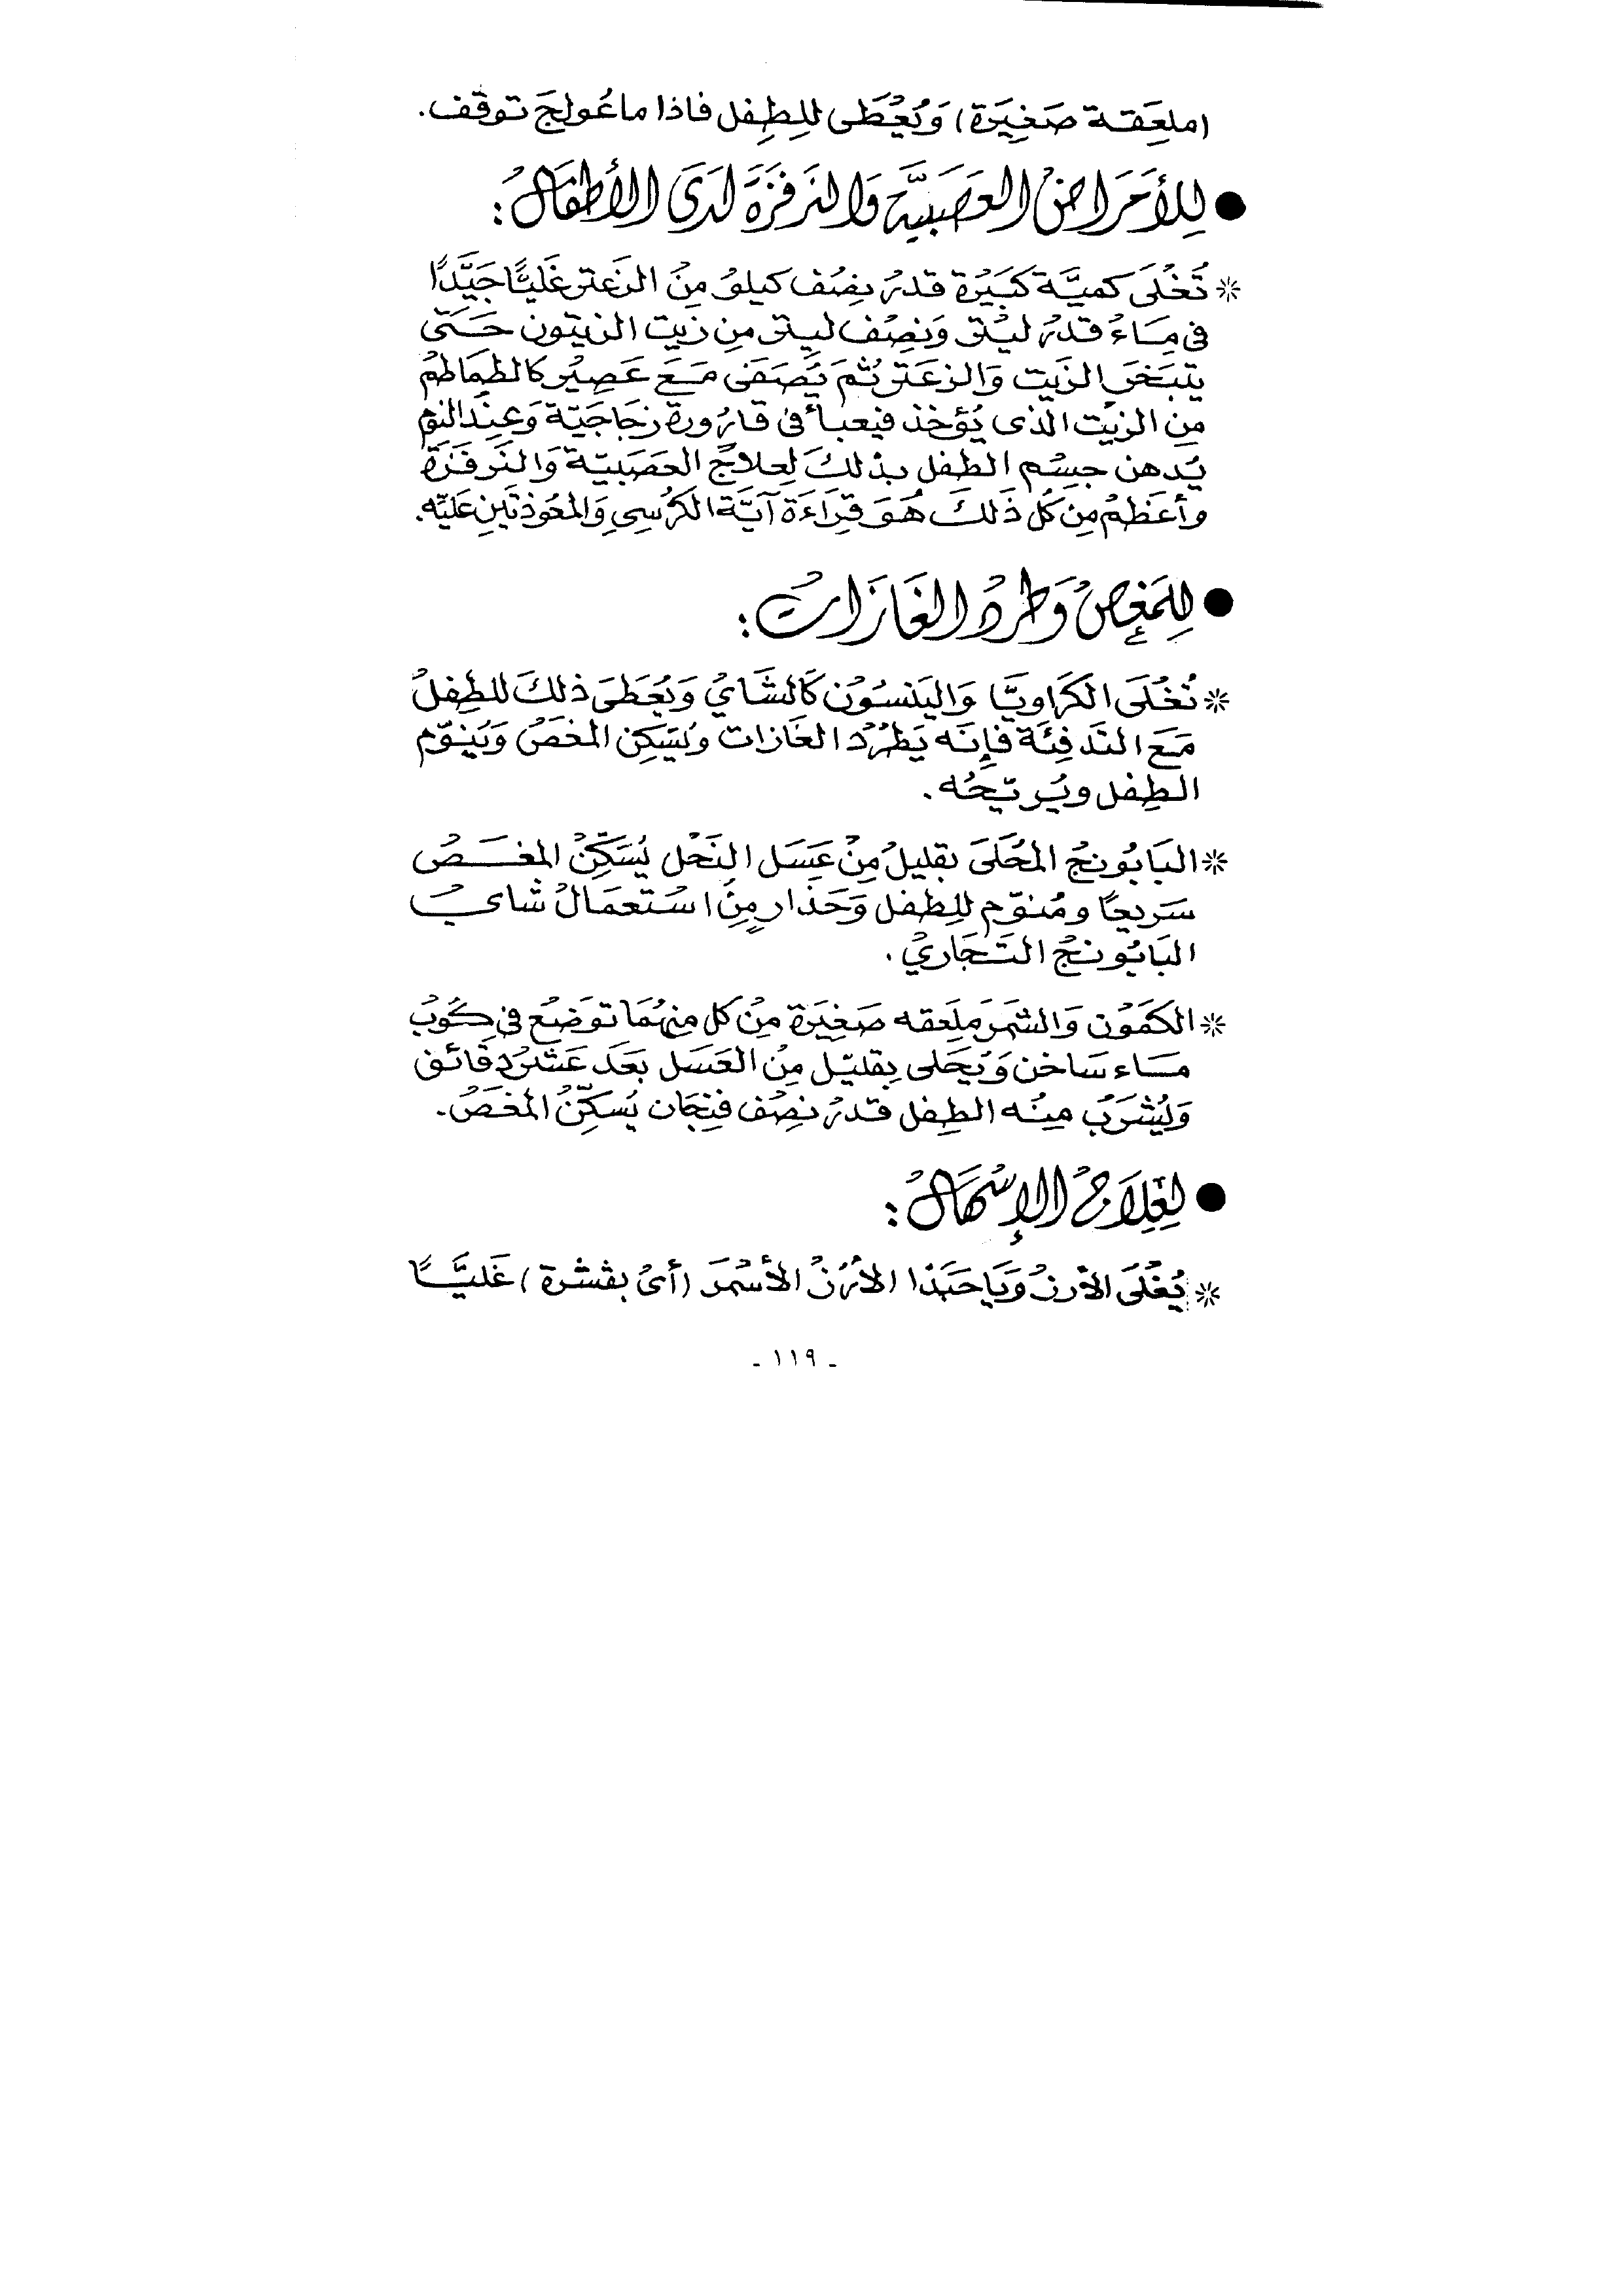 (ملعقة صغيرة) ويعطى للطفل فاذا ما عولج توقف.
● للأمراض العصبية والنرفزة لدى الأطفال:
* تغلى كمية كبيرة قدر نصف كيلو من الزعتر غليًا جيدًا
فى ماء قدر ليتر ونصف ليتر من زيت الزيتون حتى
يتبخر الزيت والزعتر ثم يصفى مع عصير كالطماطم
من الزيت الذى يؤخذ فيعبأ فى قارورة زجاجية وعند النوم
يدهن جسم الطفل بذلك لعلاج العصبية والنرفزة
وأعظم من كل ذلك هو قراءة آية الكرسي والمعوذتين عليه.
● للمغص وطرد الغازات:
* تغلى الكراويا والينسون كالشاي ويعطى ذلك للطفل
مع التدفئة فإنه يطرد الغازات ويسكن المغص وينوّم
الطفل ويريحه.
* البابونج المحلى بقليل من عسل النحل يسكّن المغص
سريعًا ومنوّم للطفل وحذار من استعمال شاي
البابونج التجاري.
* الكمون والشمر ملعقه صغيرة من كل منهما توضع فى كوب
ماء ساخن ويحلى بقليل من العسل بعد عشر دقائق
ويشرب منه الطفل قدر نصف فنجان يسكّن المغص.
● لعلاج الإسهال:
* يغلى الأرز وياحبذا الأرز الأسمر (أى بقشرة) غليًا
- ١١٩ -